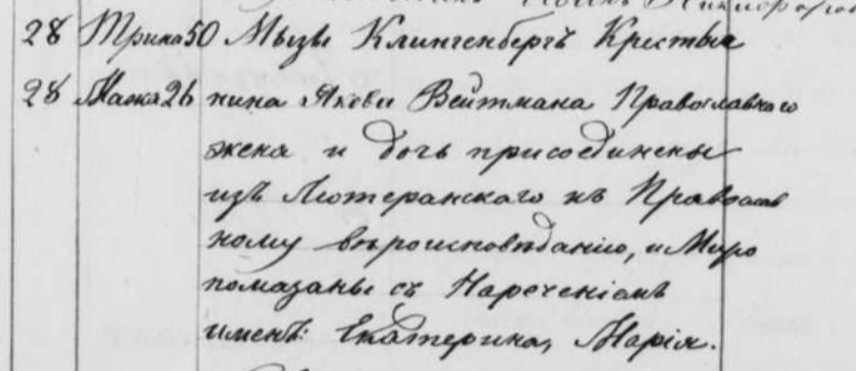 28 Трина 50 Мызы Клингенбергъ Крестья
28 Мажа 26 нина Якова Вейтмана Православнаго
жена и дочь присоединены
изъ Лютеранскаго къ Православ
ному вѣроисповѣданію, и Миро
помазаны съ Нареченіемъ
именъ: Екатерина, Марія.